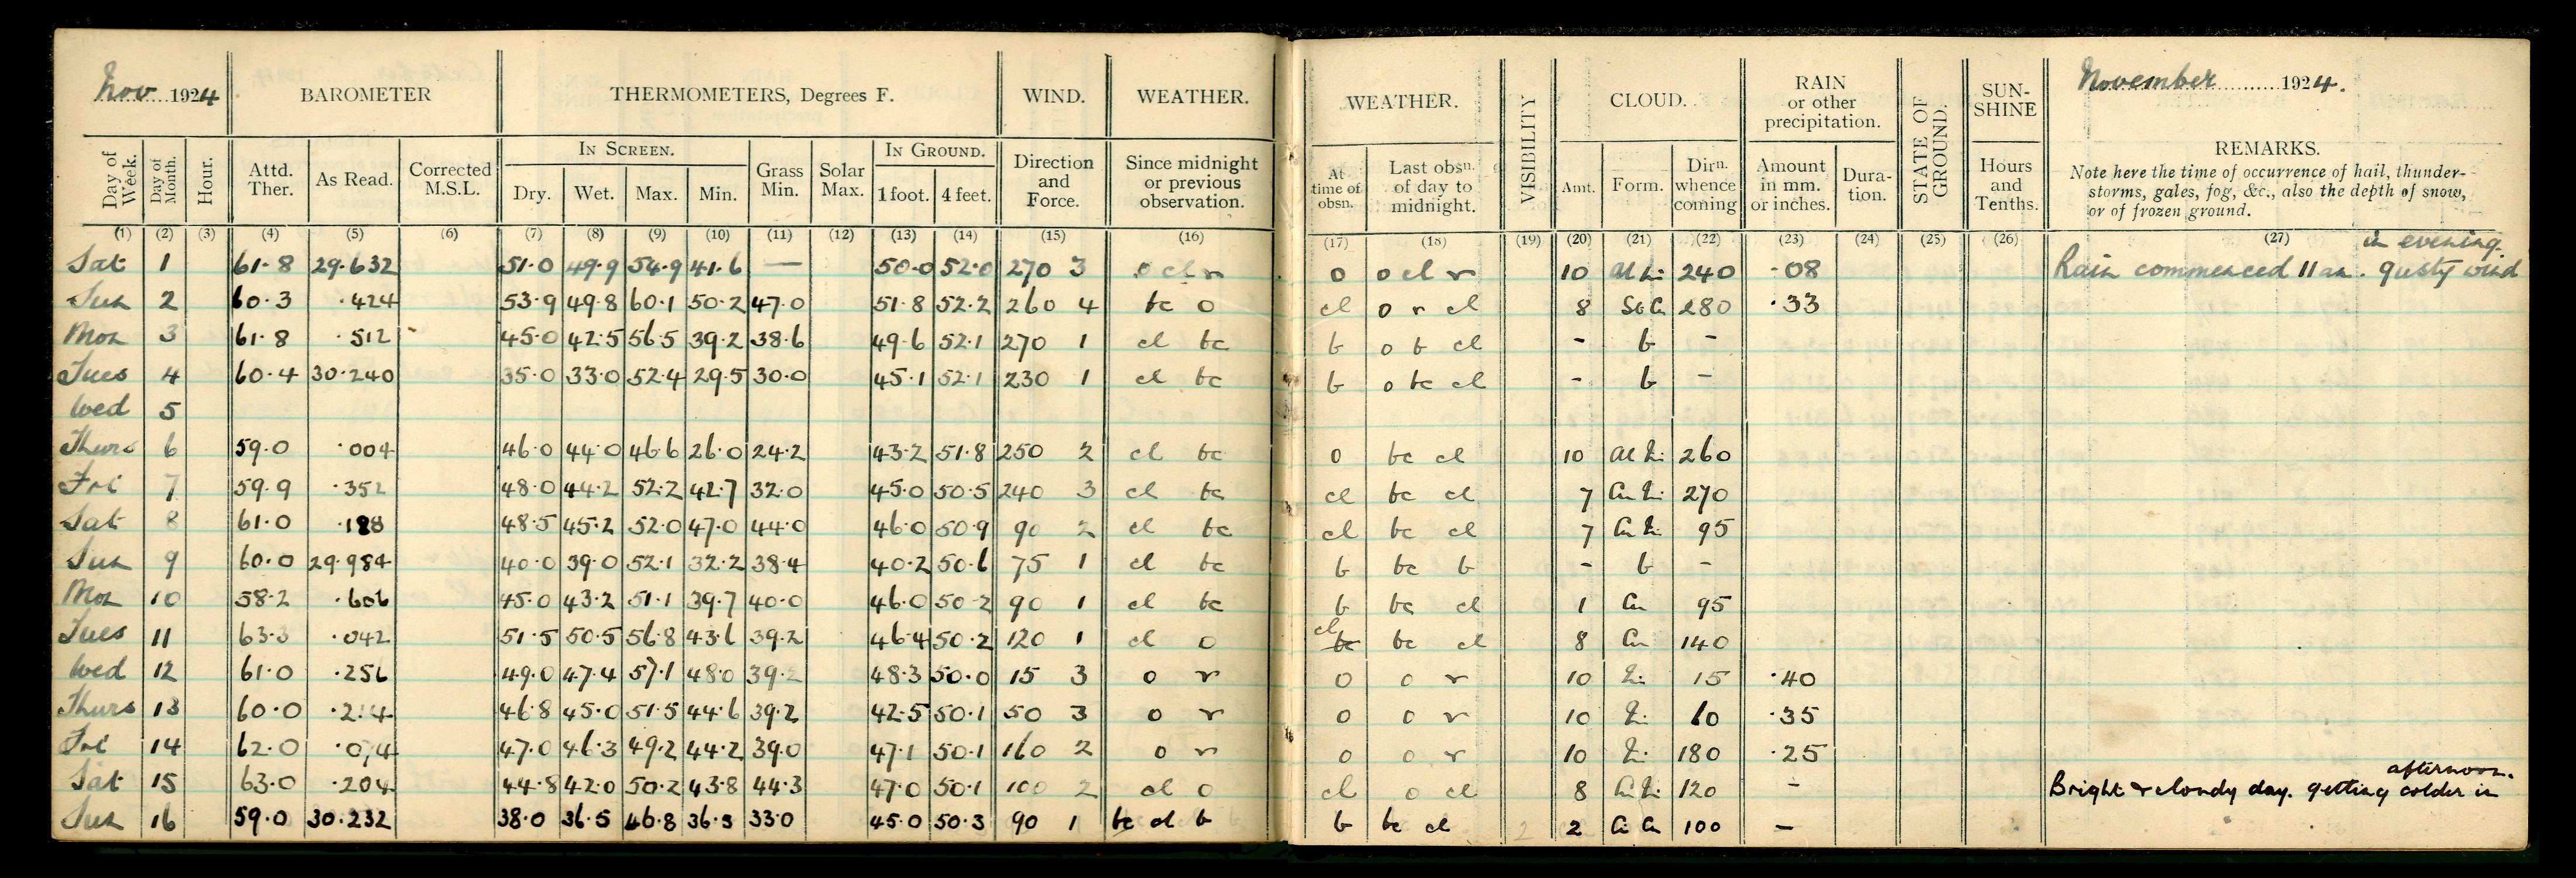 Nov 1924 BAROMETER THERMOMETERS, Degrees F. WIND. WEATHER.
Day of Week. Day of Month. Hour. Attd. Ther. As Read. Corrected M.S.L. IN SCREEN. Dry. Wet. Max. Min. Grass Min. Solar Max. IN GROUND. 1 foot. 4 feet. Direction and Force. Since midnight or previous observation.
(1) (2) (3) (4) (5) (6) (7) (8) (9) (10) (11) (12) (13) (14) (15) (16)
Sat 1 61.8 29.632 51.0 49.9 54.9 41.6 — 50.0 52.0 270 3 o cl r
Sun 2 60.3 .424 53.9 49.8 60.1 50.2 47.0 51.8 52.2 260 4 bc o
Mon 3 61.8 .512 45.0 42.5 56.5 39.2 38.6 49.6 52.1 270 1 cl bc
Tues 4 60.4 30.240 35.0 33.0 52.4 29.5 30.0 45.1 52.1 230 1 cl bc
Wed 5
Thurs 6 59.0 .004 46.0 44.0 46.6 26.0 24.2 43.2 51.8 250 2 cl bc
Fri 7 59.9 .352 48.0 44.2 52.2 42.7 32.0 45.0 50.5 240 3 cl bc
Sat 8 61.0 48.5 45.2 52.0 47.0 44.0 46.0 50.9 90 2 cl bc
Sun 9 60.0 29.984 40.0 39.0 52.1 32.2 38.4 40.2 50.6 75 1 cl bc
Mon 10 58.2 .606 45.0 43.2 51.1 39.7 40.0 46.0 50.2 90 1 cl bc
Tues 11 63.3 .042 51.5 50.5 56.8 43.6 39.2 46.4 50.2 120 1 cl o
Wed 12 61.0 .256 49.0 47.4 57.1 48.0 39.2 48.3 50.0 15 3 o r
Thurs 13 60.0 .214 46.8 45.0 51.5 44.6 39.2 42.5 50.1 50 3 o r
Fri 14 62.0 47.0 46.3 49.2 44.2 39.0 47.1 50.1 160 2 o r
Sat 15 63.0 .204 44.8 42.0 50.2 43.8 44.3 47.0 50.1 100 2 cl o
Sun 16 59.0 30.232 38.0 36.5 46.8 36.3 33.0 45.0 50.3 90 1 bc cl b
WEATHER. VISIBILITY CLOUD. RAIN or other precipitation. STATE OF GROUND. SUN-SHINE November 1924.
At time of obsn. Last obsn. of day to midnight. Amt. Form. Dirn. whence coming Amount in mm. or inches. Dura-tion. Hours and Tenths. REMARKS.
Note here the time of occurrence of hail, thunder-
storms, gales, fog, &c., also the depth of snow,
or of frozen ground.
(17) (18) (19) (20) (21) (22) (23) (24) (25) (26) (27)
in evening.
o o cl r 10 240 .08 Rain commenced 11 am. gusty wind
cl o r cl 8 280 .33
b o b cl - b -
b o bc cl - b -
o bc cl 10 260
cl bc cl 7 270
cl bc cl 7 95
b bc b - b -
b bc cl 1 Cu 95
cl bc bc cl 8 Cu 140
o o r 10 15 .40
o o r 10 60 .35
o o r 10 180 .25
afternoon.
cl o cl 8 120 - Bright & cloudy day. getting colder in
b bc cl 2 2 Ci Cu 100 —